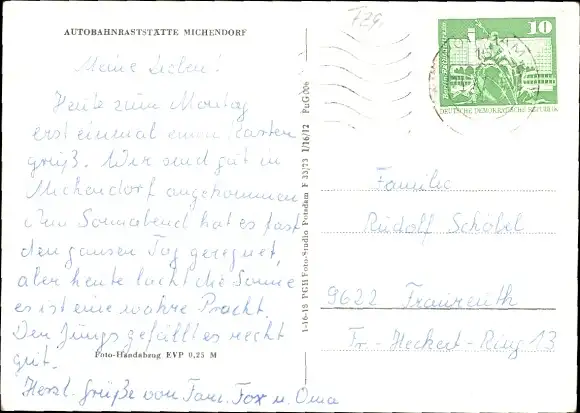 AUTOBAHNRASTSTÄTTE MICHENDORF
Meine Lieben!
Heute zum Montag
erst einmal einen
grüß. Wir sind gut in
Michendorf angekommen
Am Sonnabend hat es fast
den ganzen Tag geregnet,
aber heute lacht die Sonne
es ist eine wahre Pracht.
Den Jungs gefällt es recht
gut.
Herzl. Grüße von Fam. Fox u. Oma
Foto-Handabzug EVP 0,25 M
1-16-18 PGH Foto-Studio Potsdam F 33/73 I/16/12 FnG 006
Fzg.
10
DEUTSCHE DEMOKRATISCHE REPUBLIK
Familie
Rudolf Schöbel
9622 Fraureuth
Fr.-Heckert-Ring 13